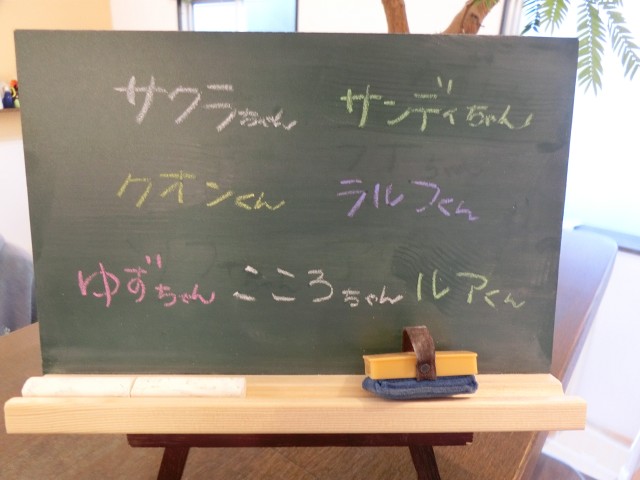 サクラちゃん サンディちゃん
クオンくん ラルフくん
ゆずちゃん こころちゃん ルアくん